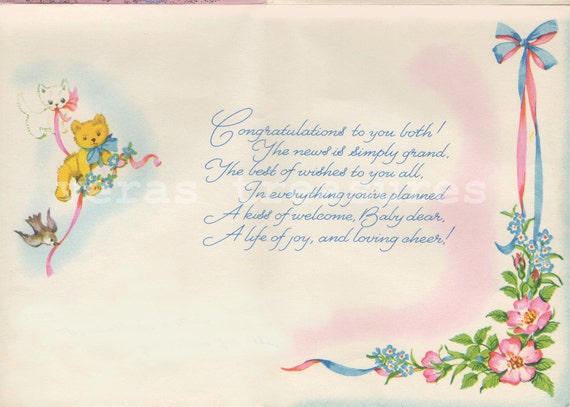 Congratulations to you both!
The news is simply grand,
The best of wishes to you all,
In everything you've planned
A kiss of welcome, Baby dear,
A life of joy, and loving cheer!